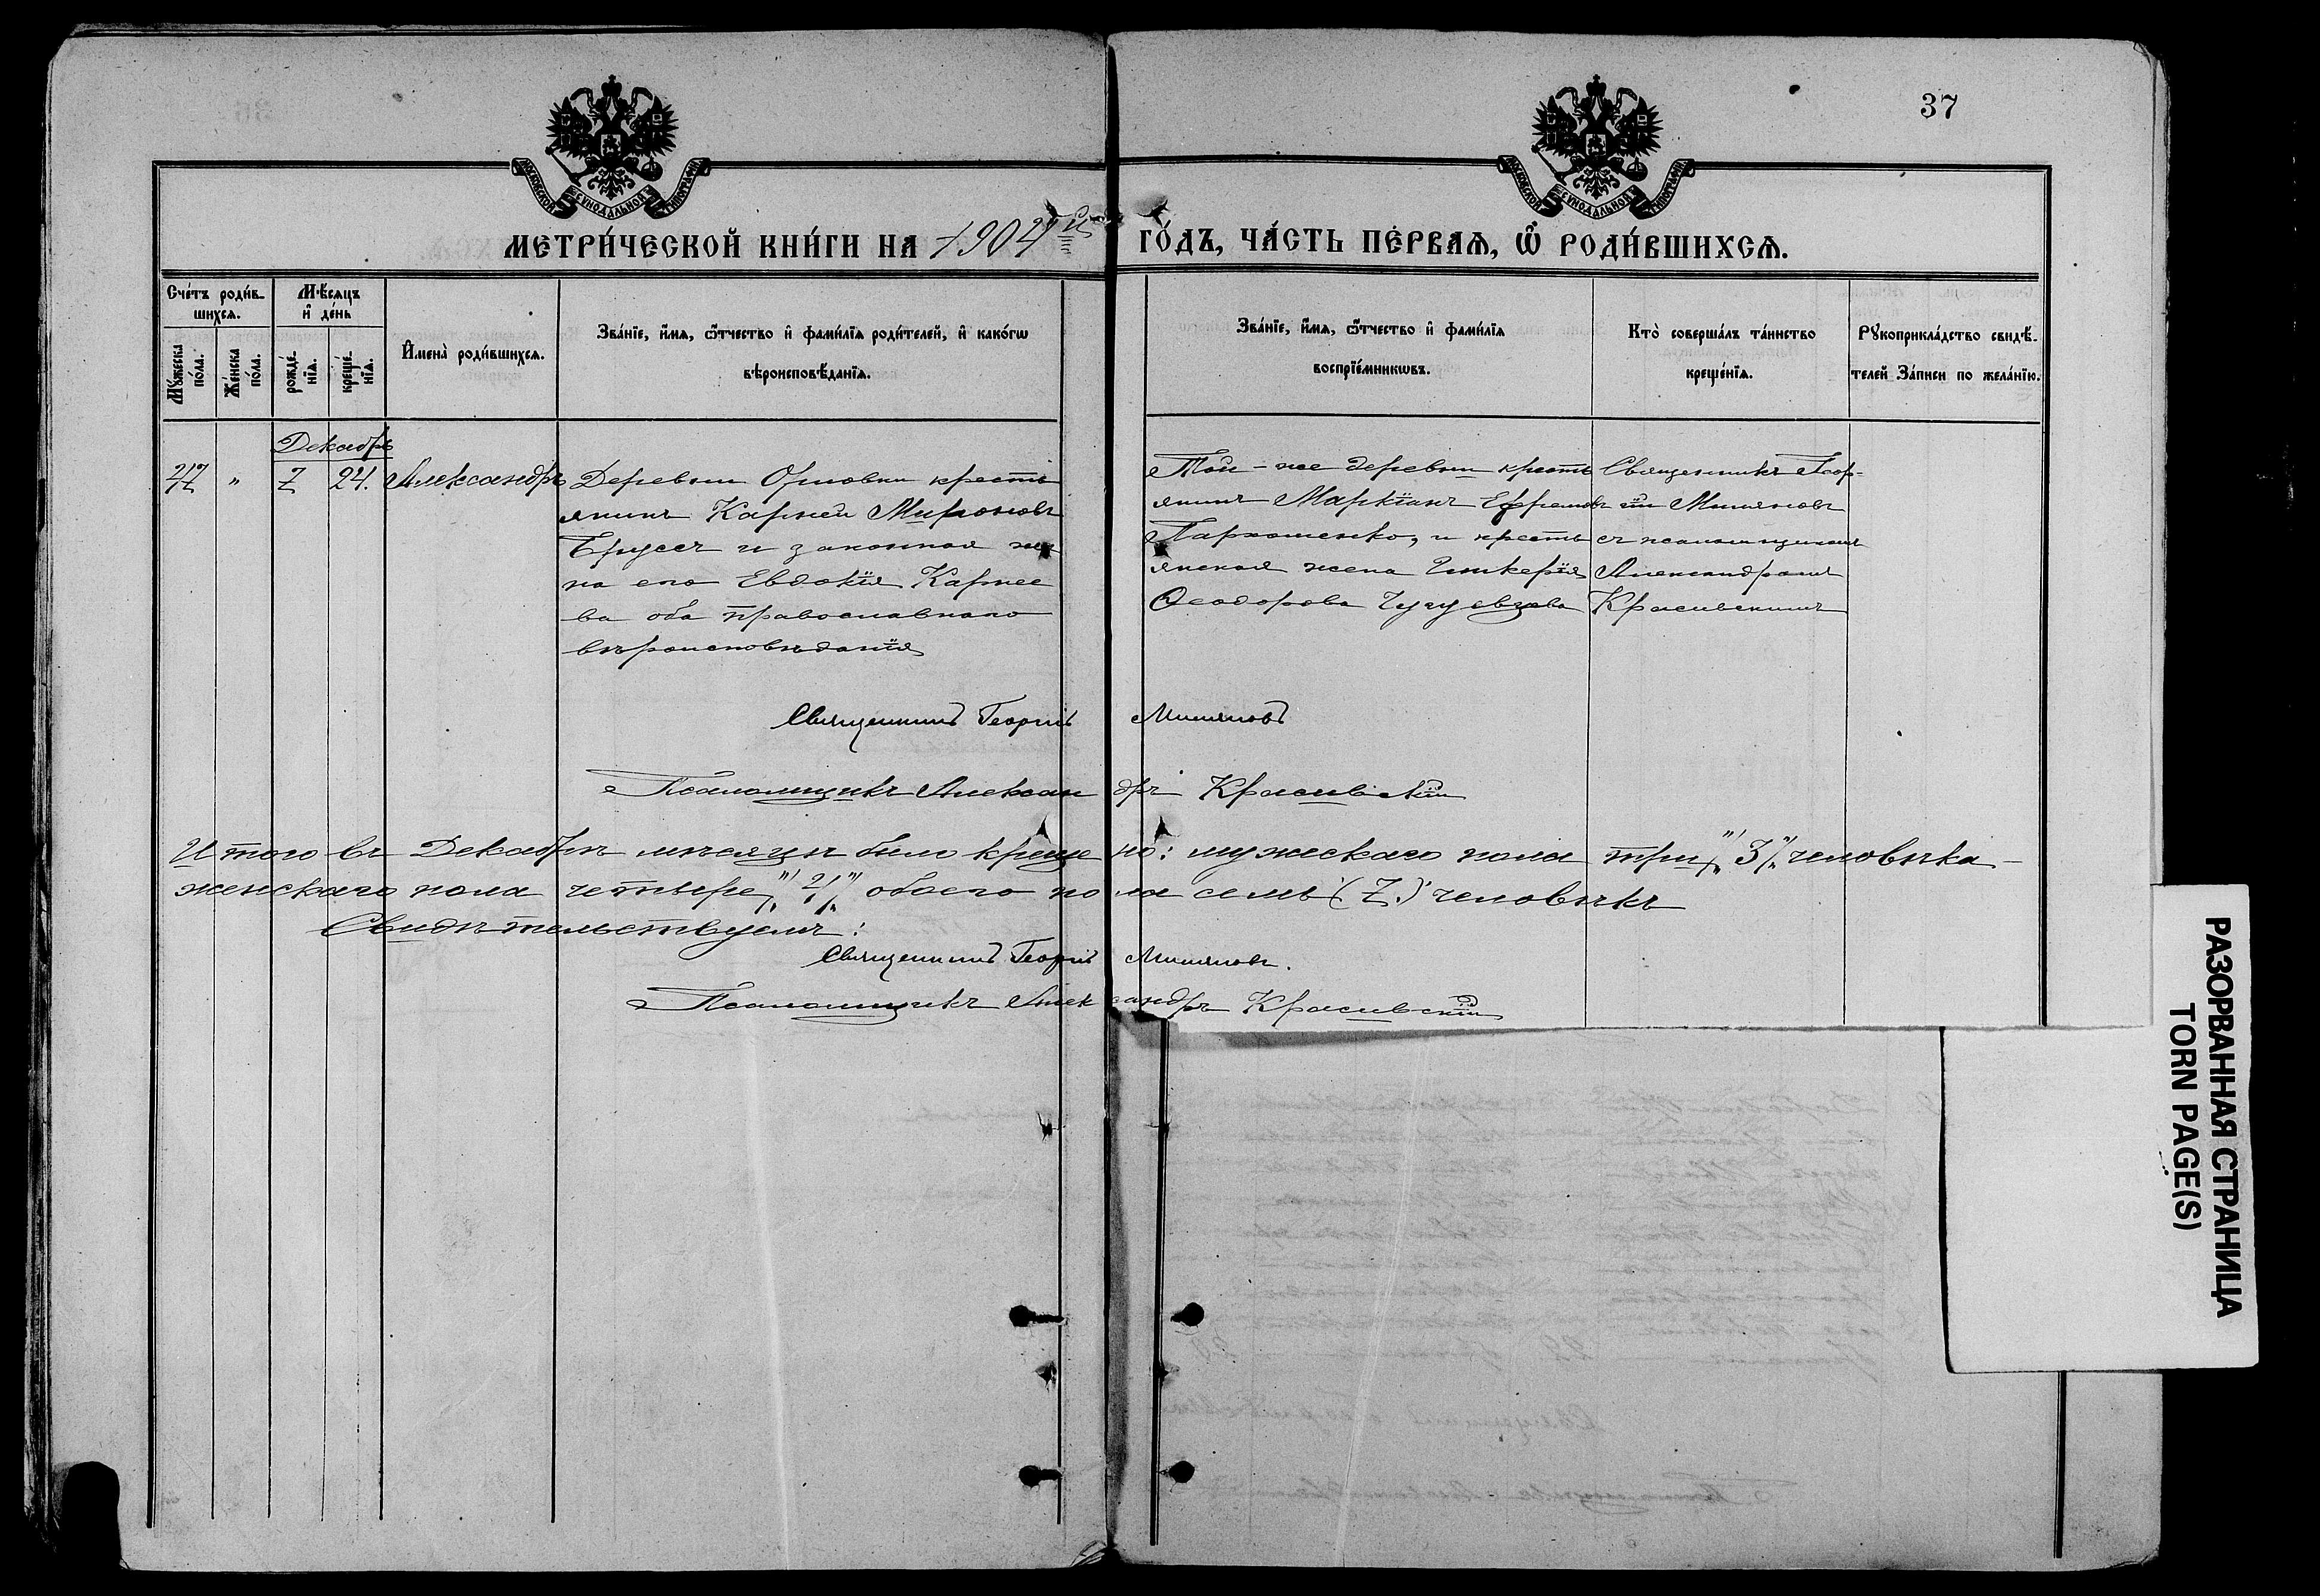 37
МОСКОВСКОЙ СѴНОДАЛЬНОЙ ТИПОГРАФІИ
МОСКОВСКОЙ СѴНОДАЛЬНОЙ ТИПОГРАФІИ
МЕТРИ́ЧЕСКОЙ КНИ́ГИ НА 1904й ГО́ДЪ, ЧА́СТЬ ПЕ́РВАЯ, Ѡ҆ РОДИ́ВШИХСЯ.
Сче́тъ роди́в-
шихся.
Мѣ́сяцъ
и҆ де́нь
Мꙋ́жеска
по́ла.
Же́нска
по́ла.
рожде́-
нїя.
креще́-
нїя.
И҆мена̀ роди́вшихся.
Зва́нїе, и҆́мя, ѻ҆́тчество и҆ фами́лїя роди́телей, и҆ како́гѡ
вѣроисповѣ́данїя.
Зва́нїе, и҆́мя, ѻ҆́тчество и҆ фами́лїя
воспрїе́мникѡвъ.
Кто̀ соверша́лъ та́инство
креще́нїя.
Рꙋкоприкла́дство свидѣ́-
телей за́писи по жела́нїю.
Декабрь
47 " 7 24. Александръ
Деревни Орловки кресть
янинъ Карней Мироновъ
и законная же
на его Евдокія Карнее
ва оба православнаго
вѣроисповѣданія
Той-же деревни кресть
янинъ Маркіанъ Ефремовъ
Пархоменко, и кресть
янская жена Гликерія
Ѳеодорова
Священникъ Геор-
гій
съ псаломщикомъ
Александромъ
Красивскимъ
Священникъ Георгій
Псаломщикъ Александръ Красивскій
Итого въ Декабрѣ мѣсяцѣ было крещено: мужескаго пола три "3" человѣка
женскаго пола четыре "4" обоего пола семь (7.) человѣкъ
Свидѣтельствуемъ:
Священникъ Георгій
Псаломщикъ Александръ Красивскій
РАЗОРВАННАЯ СТРАНИЦА
TORN PAGE(S)